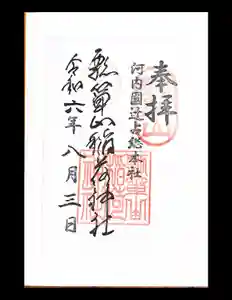 奉拝
河内國辻占総本社
瓢簞山稲荷神社
令和六年八月三日